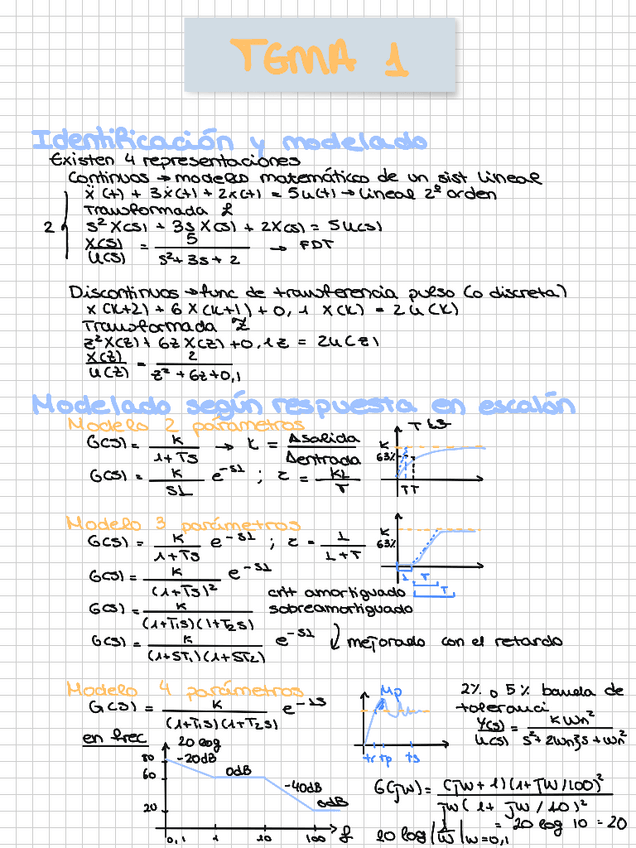 TEMA 1
Identificación y modelado
Existen 4 representaciones
Continuos → modelo matemático de un sist lineal
ẍ(t) + 3ẋ(t) + 2x(t) = 5u(t) → lineal 2º orden
Transformada ℒ
2 { s² X(s) + 3s X(s) + 2X(s) = 5U(s)
X(s)/U(s) = 5/(s² + 3s + 2) → FDT
Discontinuos → func de transferencia pulso (o discreta)
x(k+2) + 6x(k+1) + 0,1 x(k) = 2u(k)
Transformada Z
z²X(z) + 6zX(z) + 0,1z = 2U(z)
X(z)/U(z) = 2/(z² + 6z + 0,1)
Modelado según respuesta en escalón
Modelo 2 parámetros
G(s) = K/(1+Ts) → K = Δsalida/Δentrada
G(s) = K/(SL) e^-SL ; z = KL/T
T LS
K
63%
T T
Modelo 3 parámetros
G(s) = K/(1+Ts) e^-SL ; z = L/(L+T)
G(s) = K/(1+Ts)² e^-SL
crit amortiguado
G(s) = K/((1+T₁s)(1+T₂s)) sobreamortiguado
G(s) = K/((1+ST₁)(1+ST₂)) e^-SL mejorado con el retardo
K
63%
L T
T
Modelo 4 parámetros
G(s) = K/((1+T₁s)(1+T₂s)) e^-LS
Mp
tr tp ts
2% o 5% banda de
toleranci
Y(s)/U(s) = K wn²/(s² + 2wnξs + wn²)
en frec
20 log
80
-20dB
60
0dB
-40dB
20
0dB
0,1 1 10 100 f
G(jw) = (jw + 1)(1 + jw/100)²/(jw(1 + jw/10)²
20 log |1/w| w=0,1 = 20 log 10 = 20